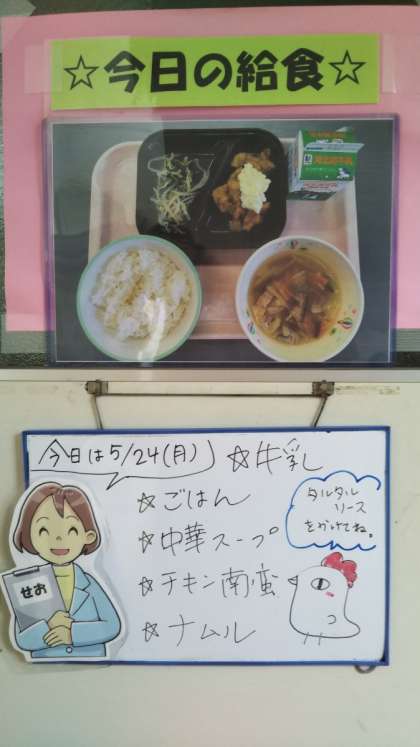 ☆今日の給食☆
今日は5/24(月)
☆牛乳
☆ごはん
☆中華スープ
☆チキン南蛮
☆ナムル
タルタル
ソース
をかけてね。
せお